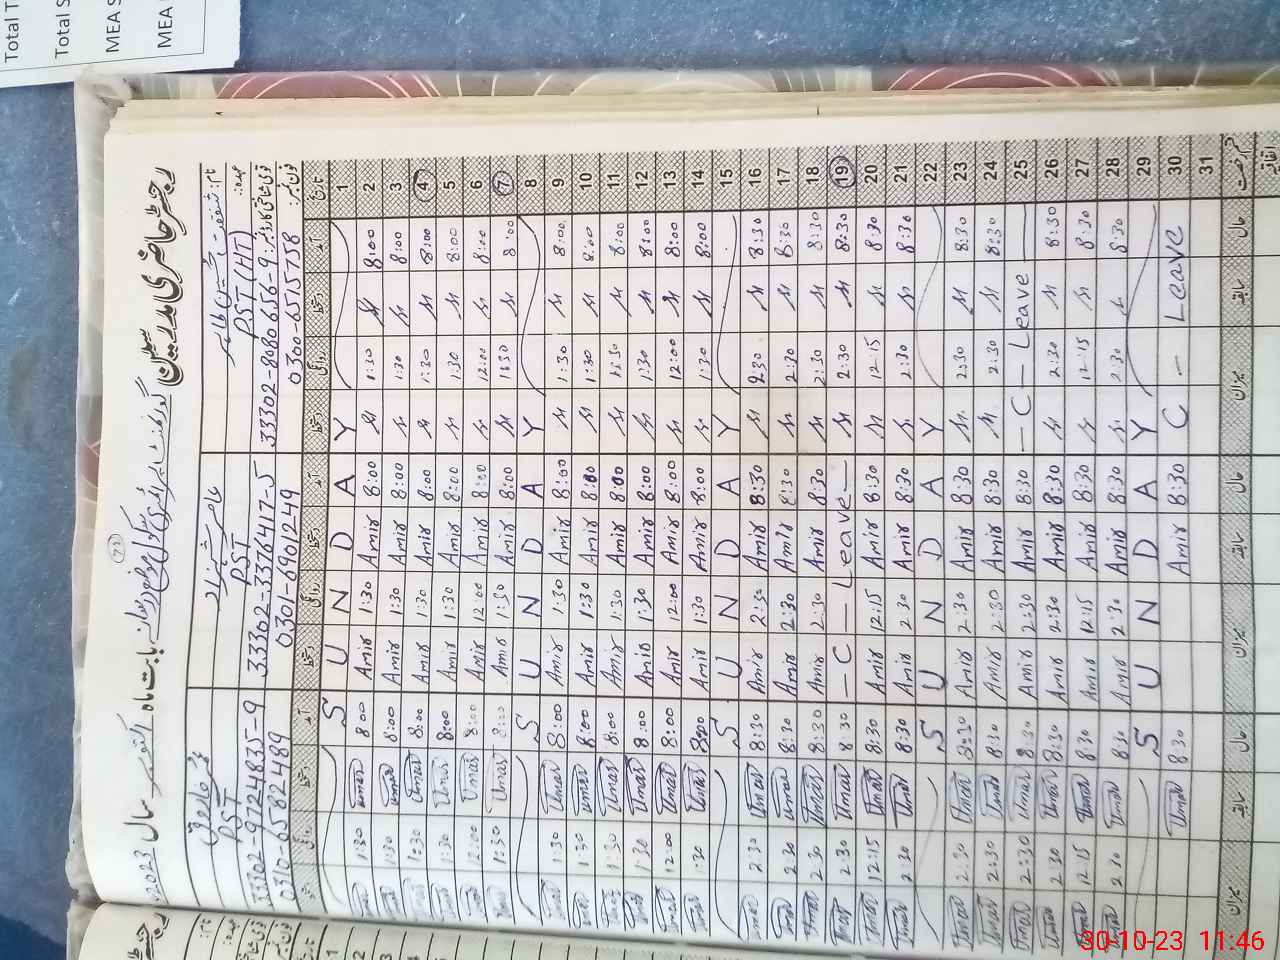 Total T
Total S
MEA S
MEA
رجسٹر حاضری مدرسین
گورنمنٹ پرائمری سکول
بابت ماہ اکتوبر سال 2023
نام:
عہدہ:
PST (HT)
PST
PST
33302-8080656-9
33302-3376417-5
33302-9724835-9
فون نمبر:
0300-6515758
0301-6901249
0310-6582489
تاریخ آمد دستخط روانگی دستخط آمد دستخط روانگی دستخط آمد دستخط روانگی دستخط
1 Y A D N U S
2 8:00 1:30 8:00 Amir 1:30 Amir 8:00 Umar 1:30 Umar
3 8:00 1:30 8:00 Amir 1:30 Amir 8:00 Umar 1:30 Umar
4 8:00 1:30 8:00 Amir 1:30 Amir 8:00 Umar 1:30 Umar
5 8:00 1:30 8:00 Amir 1:30 Amir 8:00 Umar 1:30 Umar
6 8:00 12:00 8:00 Amir 12:00 Amir 8:00 Umar 12:00 Umar
7 8:00 1:30 8:00 Amir 1:30 Amir 8:00 Umar 1:30 Umar
8 Y A D N U S
9 8:00 1:30 8:00 Amir 1:30 Amir 8:00 Umar 1:30 Umar
10 8:00 1:30 8:00 Amir 1:30 Amir 8:00 Umar 1:30 Umar
11 8:00 1:30 8:00 Amir 1:30 Amir 8:00 Umar 1:30 Umar
12 8:00 1:30 8:00 Amir 1:30 Amir 8:00 Umar 1:30 Umar
13 8:00 12:00 8:00 Amir 12:00 Amir 8:00 Umar 12:00 Umar
14 8:00 1:30 8:00 Amir 1:30 Amir 8:00 Umar 1:30 Umar
15 Y A D N U S
16 8:30 2:30 8:30 Amir 2:30 Amir 8:30 Umar 2:30 Umar
17 8:30 2:30 8:30 Amir 2:30 Amir 8:30 Umar 2:30 Umar
18 8:30 2:30 8:30 Amir 2:30 Amir 8:30 Umar 2:30 Umar
19 8:30 2:30 — C — Leave — 8:30 Umar 2:30 Umar
20 8:30 12:15 8:30 Amir 12:15 Amir 8:30 Umar 12:15 Umar
21 8:30 2:30 8:30 Amir 2:30 Amir 8:30 Umar 2:30 Umar
22 Y A D N U S
23 8:30 2:30 8:30 Amir 2:30 Amir 8:30 Umar 2:30 Umar
24 8:30 2:30 8:30 Amir 2:30 Amir 8:30 Umar 2:30 Umar
25 — C — Leave — 8:30 Amir 2:30 Amir 8:30 Umar 2:30 Umar
26 8:30 2:30 8:30 Amir 2:30 Amir 8:30 Umar 2:30 Umar
27 8:30 12:15 8:30 Amir 12:15 Amir 8:30 Umar 12:15 Umar
28 8:30 2:30 8:30 Amir 2:30 Amir 8:30 Umar 2:30 Umar
29 Y A D N U S
30 C — Leave 8:30 Amir 8:30 Umar
31
حال سابقہ میزان حال سابقہ میزان حال سابقہ میزان
اتفاقیہ
1
2
3
4
30-10-23 11:46